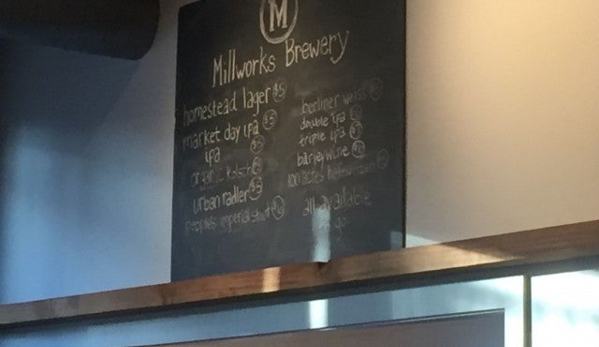 M
Millworks Brewery
homestead lager $5
market day ipa $5
ipa $5
organic kolsch
urban radler $5
peoples imperial stout
berliner weiss
double ipa
triple ipa
barleywine
hefeweizen
all available
to go